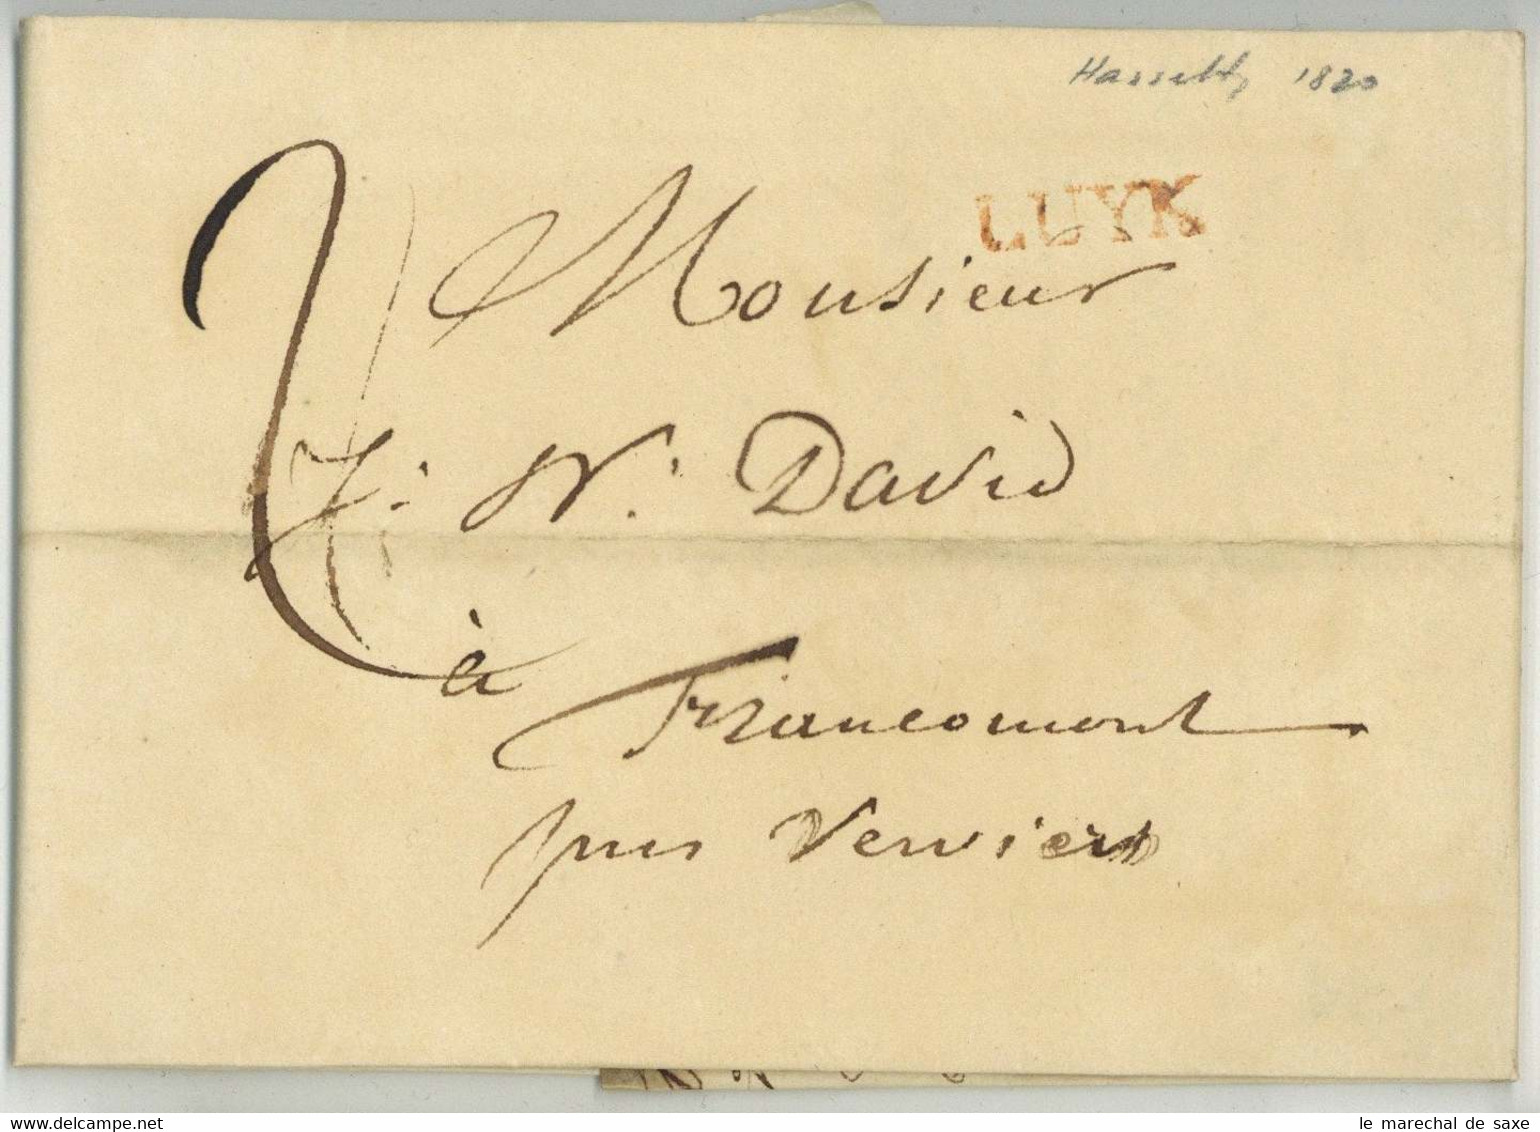 Hasselt, 1820
LUYK
Monsieur
J: W: David
à Francomont
près Verviers
www.delcampe.net
le marechal de saxe